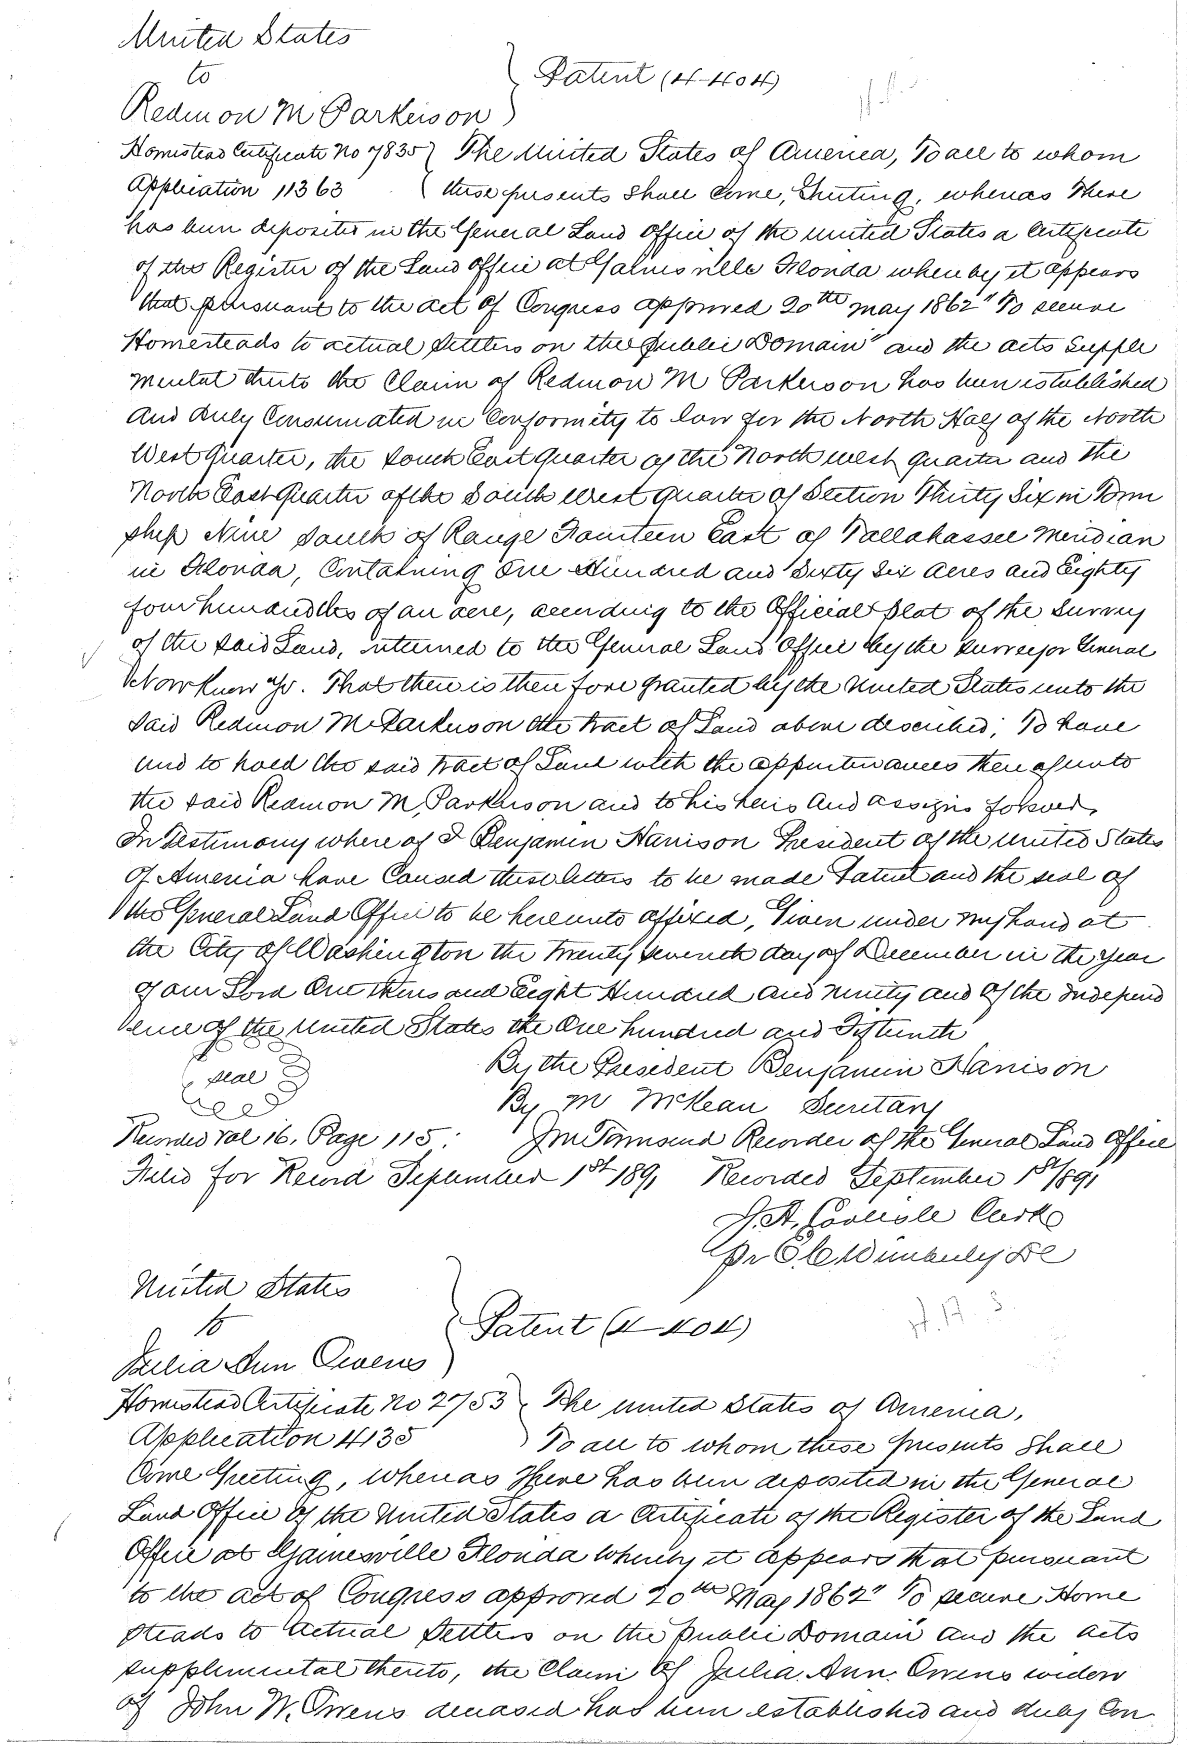 United States
to
Patent (4-404)
Redmon M Parkerson
Homestead Certificate No 7835 The United States of America, To all to whom
Application 11363 these presents shall Come, Greeting, whereas There
has been deposited in the General Land Office of the United States a Certificate
of the Register of the Land office at Gainesville Florida whereby it appears
that pursuant to the act of Congress approved 20th May 1862 "To secure
Homesteads to actual Settlers on the Public Domain" and the acts Supple
mental thereto the Claim of Redmon M Parkerson has been established
and duly Consumated in Conformity to law for the North Half of the North
West Quarter, the South East Quarter of the North west quarter and the
North East Quarter of the South west quarter of Section Thirty Six in Town
ship Nine South of Range Fourteen East of Tallahassee Meridian
in Florida, Containing One Hundred and Sixty Six Acres and Eighty
four hundredths of an acre, according to the Official Plat of the Survey
of the said Land, returned to the General Land Office by the Surveyor General
Now know Ye. That there is therefore granted by the United States unto the
said Redmon M Parkerson the tract of Land above described; To have
and to hold the said tract of Land with the appurtenances thereof unto
the said Redmon M, Parkerson and to his heirs and assigns forever,
In Testimony where of I Benjamin Harrison President of the United States
Of America have Caused these letters to be made Patent and the seal of
the General Land Office to be hereunto affixed, Given under my hand at
the City of Washington the twenty seventh day of December in the year
of our Lord One thousand Eight Hundred and ninety and of the Independ
ence of the United States the One hundred and Fifteenth
By the President Benjamin Harrison
seal
By M McKean Secretary
Recorded Vol 16. Page 115. J M Townsend Recorder of the General Land Office
Filed for Record September 1st 1891 Recorded September 1st 1891
J. A. Carlisle Clerk
Pr E. C. Wimberly DC
United States
to
Patent (4-404)
Julia Ann Owens
Homestead Certificate No 2753 The United States of America,
Application 4135 To all to whom these presents Shall
Come Greeting, whereas there has been deposited in the General
Land Office of the United States a Certificate of the Register of the Land
Office at Gainesville Florida whereby it appears that pursuant
to the act of Congress approved 20th May 1862 "To secure Home
steads to Actual Settlers on the Public Domain" and the acts
supplimental thereto, the Claim of Julia Ann. Owens widow
of John W. Owens deceased has been established and duly Con